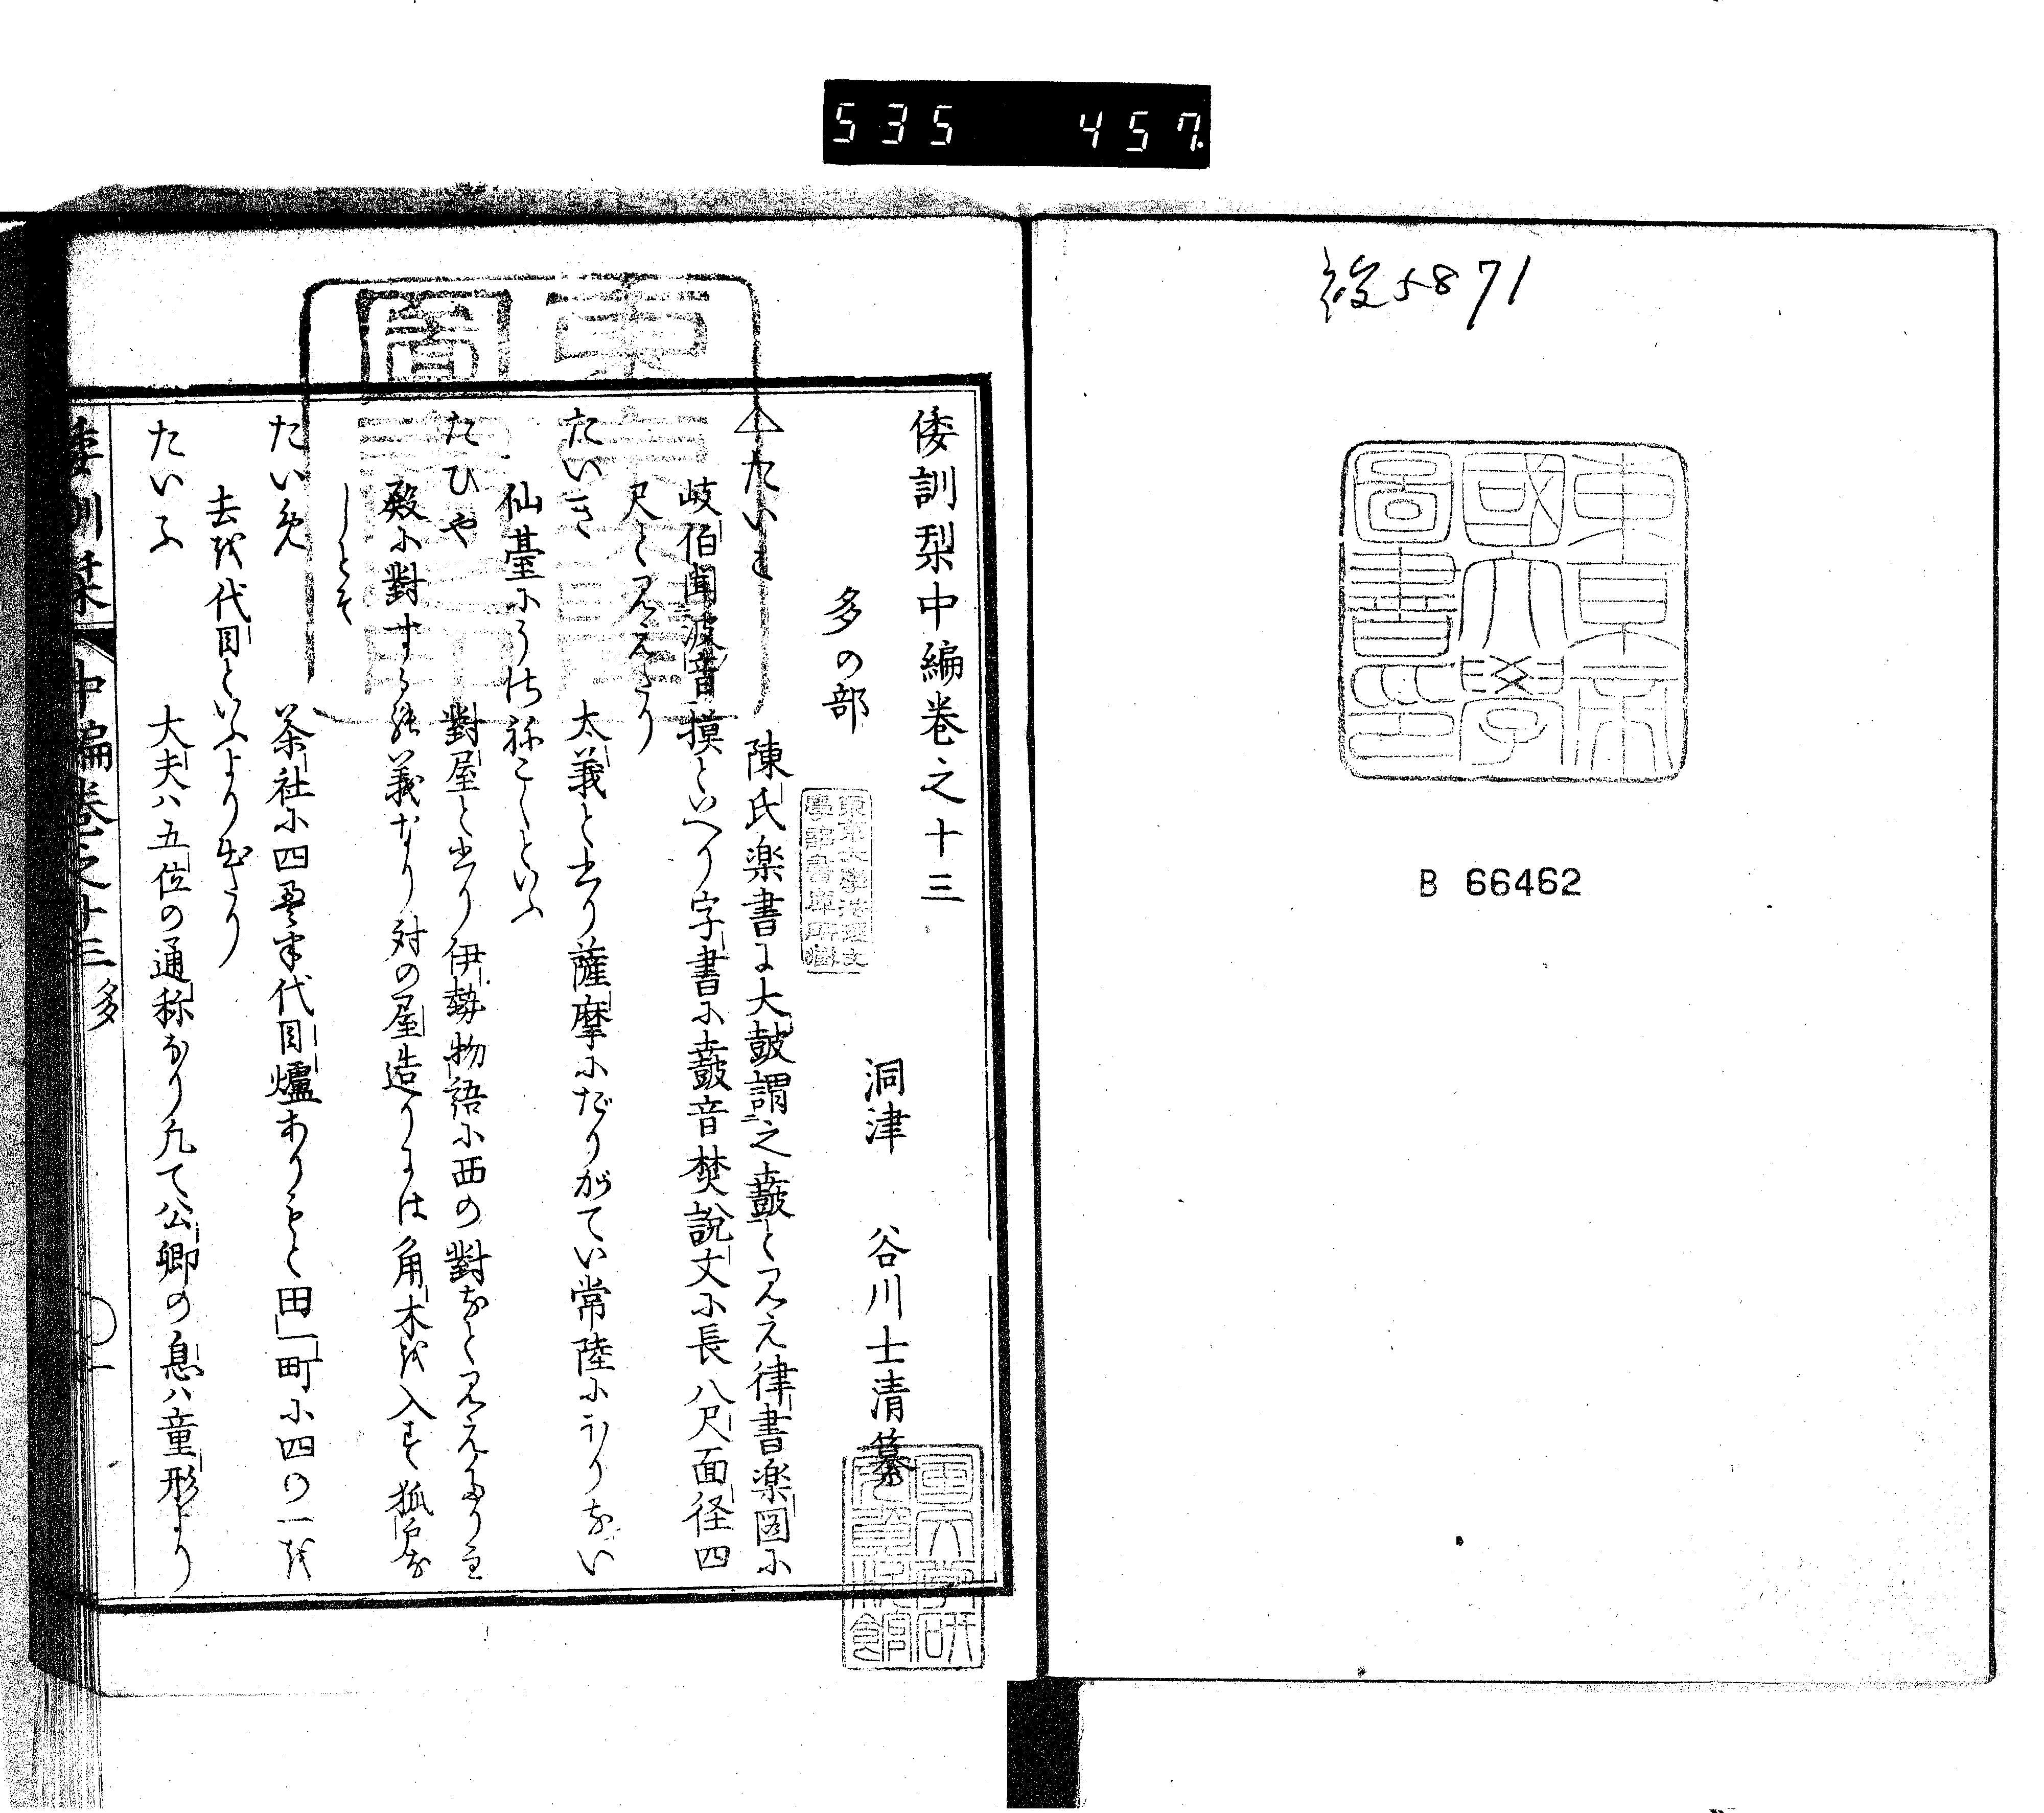 535 457
後5871
東京帝
國大學
圖書印
B 66462
倭訓栞中編卷之十三
洞津 谷川士清纂
多の部
たいこ 陳氏楽書に大鼓謂之鼖とみえ律書楽図に
岐伯聞波音摸といへり字書に鼖音焚説文に長八尺面径四
尺とみえたり
たいぎ 太義と書り薩摩にだりがてい常陸にこりない
仙臺にうけねこくといふ
たひや 對屋と書り伊勢物語に西の對なとみえたり主
殿に對する義なり対の屋造りには角木を入す狐戸な
しとそ
たいめ 茶社に四畳半代目爐あり もと田一町に四の一を
去を代目といふより出たり
たいふ 大夫ハ五位の通称なり凡て公卿の息ハ童形より
倭訓栞 中編卷之十三 多